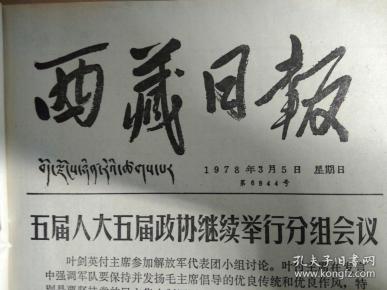 西藏日报
བོད་ལྗོངས་ཉིན་རེའི་ཚགས་པར
1978年3月5日 星期日
第6944号
五届人大五届政协继续举行分组会议
叶剑英付主席参加解放军代表团小组讨论。叶付主席在
中强调军队要保持并发扬毛主席倡导的优良传统和优良作风，特
孔夫子旧书网